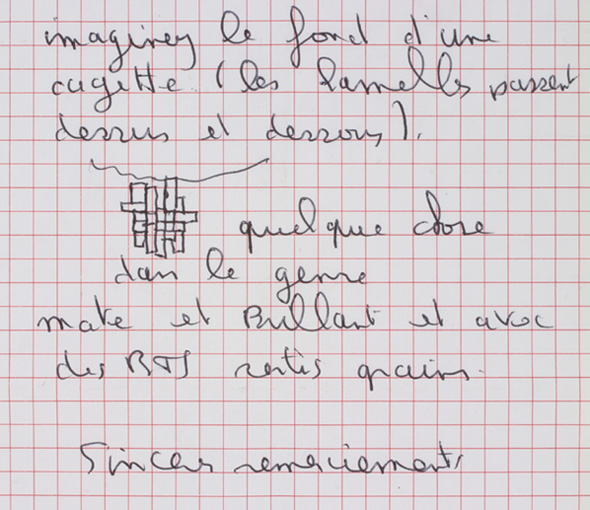 imaginez le fond d'une
cagette (les lamelles passent
dessus et dessous).
quelque chose
dans le genre
mate et Brillant et avec
des BTS sertis grains.
Sincers remerciements